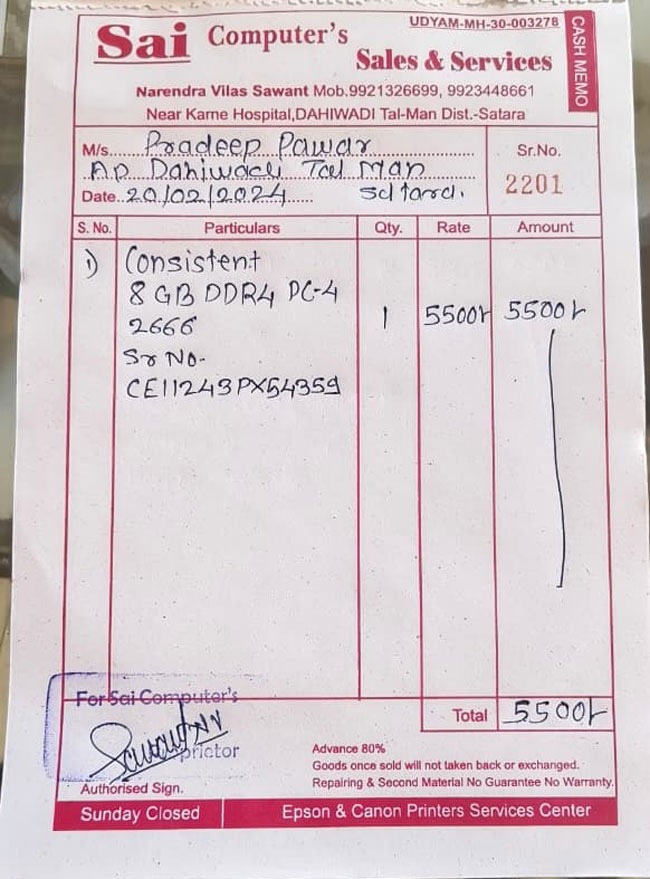 UDYAM-MH-30-003278
CASH MEMO
Sai Computer's
Sales & Services
Narendra Vilas Sawant Mob.9921326699, 9923448661
Near Karne Hospital,DAHIWADI Tal-Man Dist.-Satara
M/s. Pradeep Pawar
AP Dahiwadi Tal Man
Sr.No.
2201
Date. 20/02/2024 satara.
S. No. Particulars Qty. Rate Amount
1) Consistent
8 GB DDR4 PC-4
2666 1 5500/- 5500/-
Sr No.
CE11243PX54359
For Sai Computer's
Total 5500/-
Proprietor
Authorised Sign.
Advance 80%
Goods once sold will not taken back or exchanged.
Repairing & Second Material No Guarantee No Warranty.
Sunday Closed Epson & Canon Printers Services Center